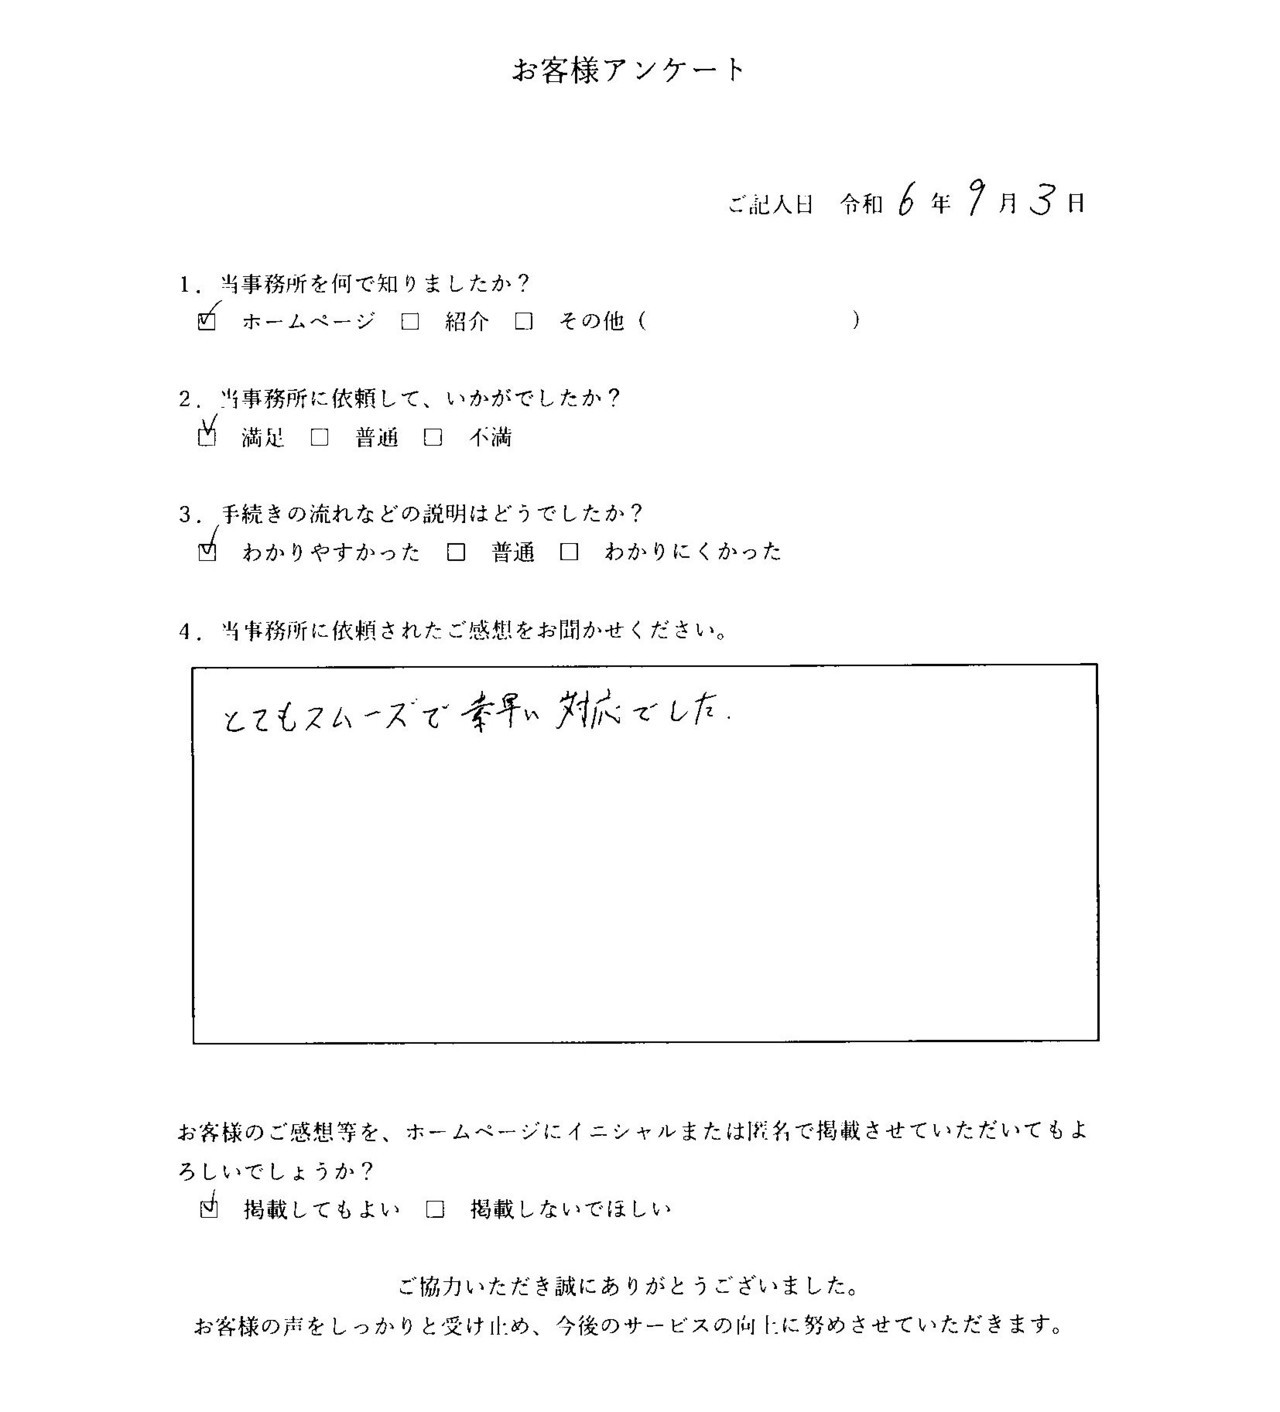 お客様アンケート
ご記入日 令和 6 年 9 月 3 日
1. 当事務所を何で知りましたか？
☑ ホームページ □ 紹介 □ その他（ ）
2. 当事務所に依頼して、いかがでしたか？
☑ 満足 □ 普通 □ 不満
3. 手続きの流れなどの説明はどうでしたか？
☑ わかりやすかった □ 普通 □ わかりにくかった
4. 当事務所に依頼されたご感想をお聞かせください。
とてもスムーズで素早い対応でした.
お客様のご感想等を、ホームページにイニシャルまたは匿名で掲載させていただいてもよ
ろしいでしょうか？
☑ 掲載してもよい □ 掲載しないでほしい
ご協力いただき誠にありがとうございました。
お客様の声をしっかりと受け止め、今後のサービスの向上に努めさせていただきます。